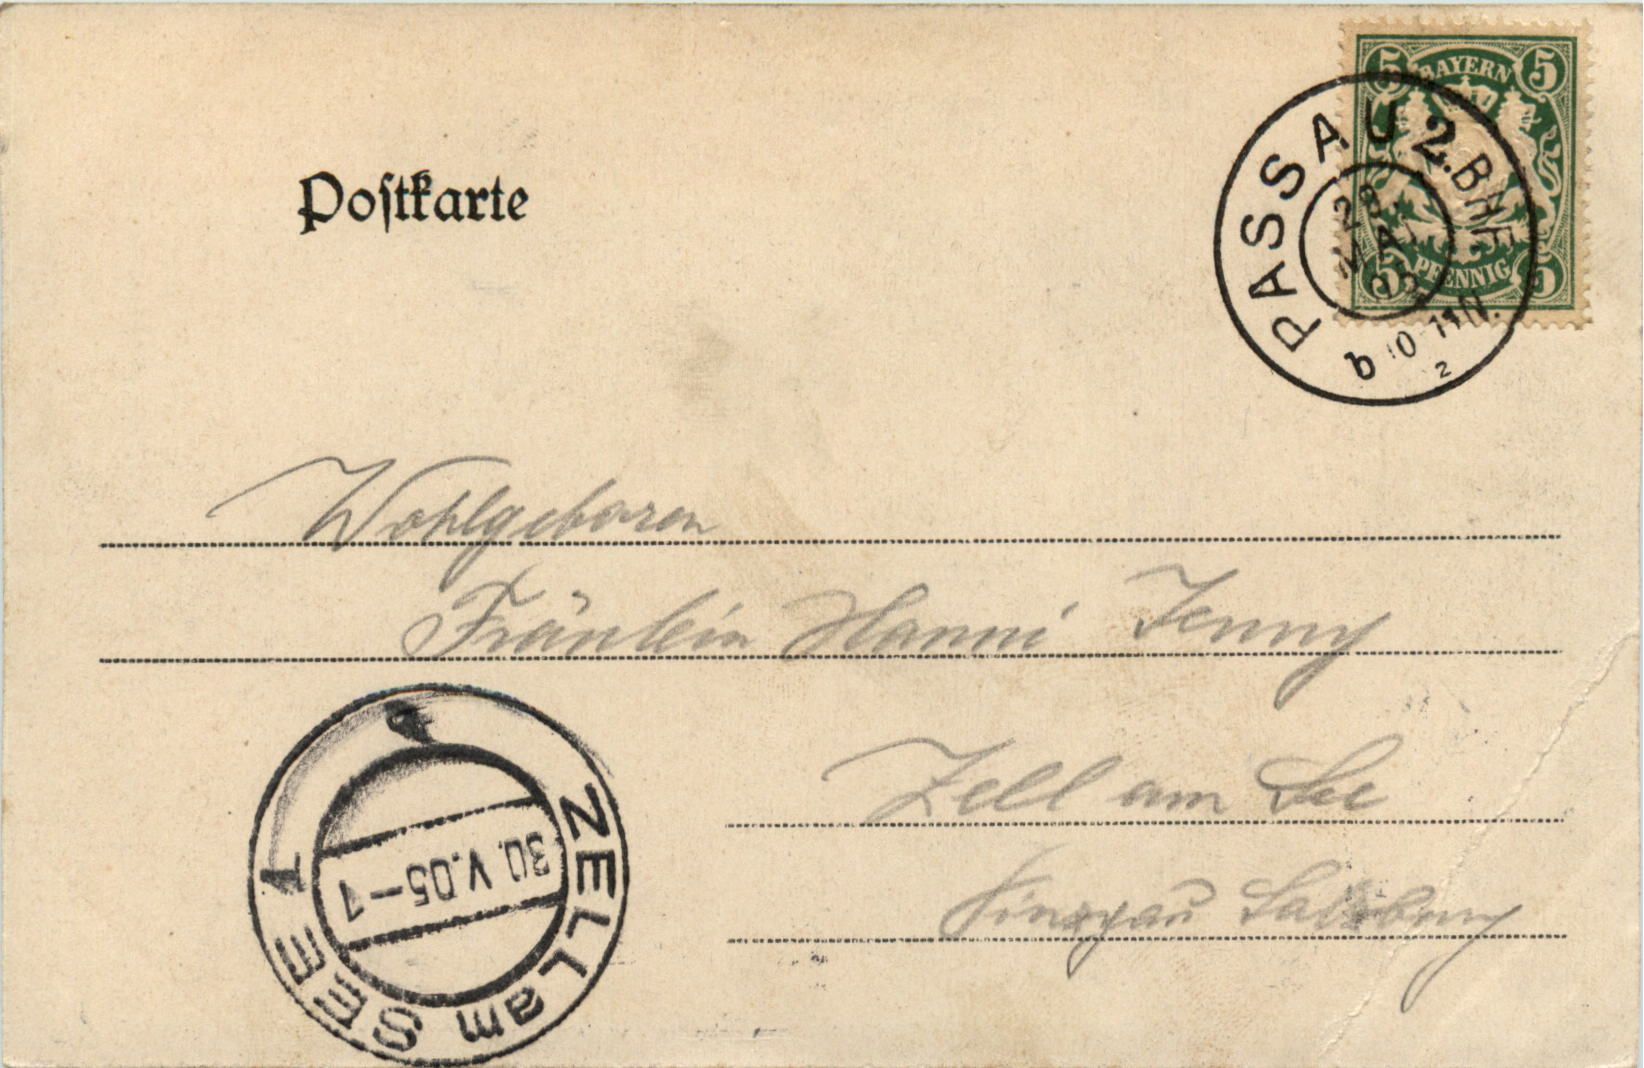 5 BAYERN 5
5 PFENNIG 5
PASSAU 2. BHF.
28.
MAI
05
b 10-11 N.
2
Postkarte
Wohlgeboren
Fräulein Hanni Jenny
Zell am See
Pinzgau Salzburg
ZELL am SEE
30.V.05-1